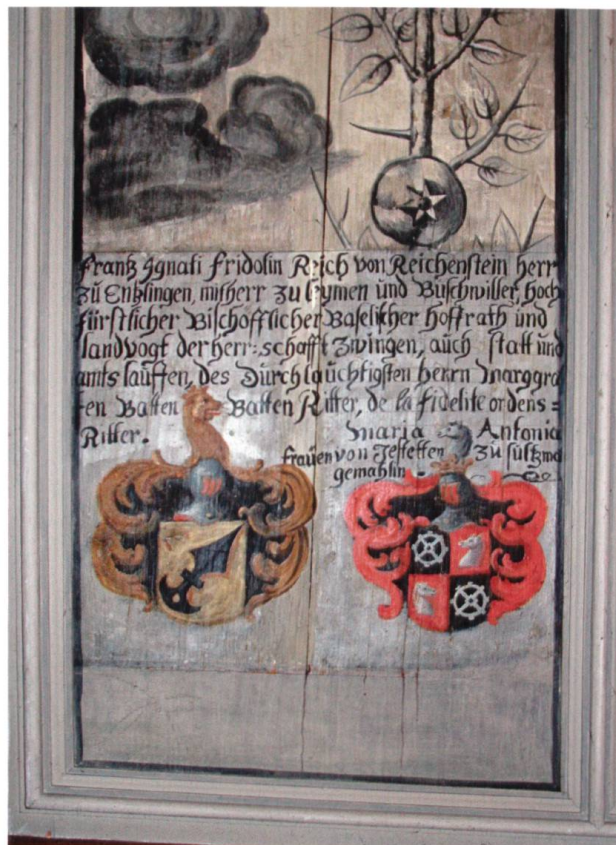 Frantz Ignati Fridolin Reich von Reichenstein herr
zů Entzlingen, mitherr zu Leymen und Buschwiller, hoch
fürstlicher Bischofflicher Baselischer Hoffrath und
landvogt der herr:schafft Zwingen, auch statt und
amts lauffen, des Dürchlaüchtigsten herrn Marggra
fen Batten Batten Ritter, de la fidelite ordens =
Ritter.
Maria Antonia
fraüen von Jestetten zů
gemahlin